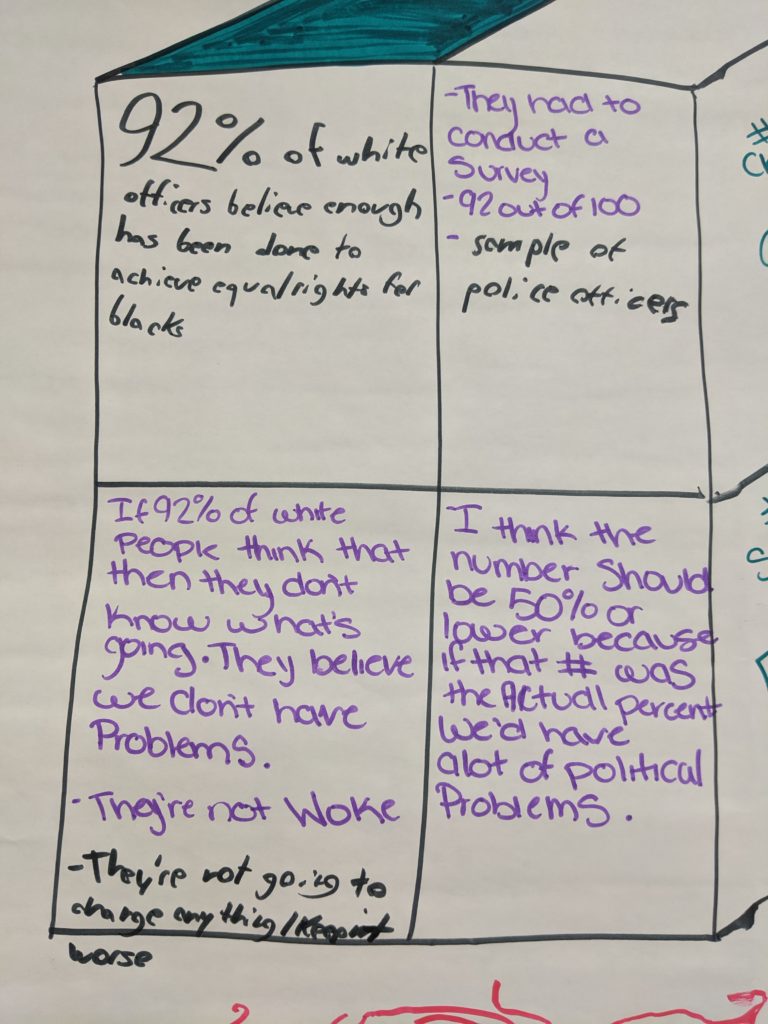 92% of white
officers believe enough
has been done to
achieve equal rights for
blacks
-They had to
conduct a
Survey
-92 out of 100
- sample of
police officers
If 92% of white
People think that
then they don't
know what's
going. They believe
we don't have
Problems.
-They're not Woke
-They're not going to
change anything/
worse
I think the
number Should
be 50% or
lower because
if that # was
the Actual percent
we'd have
alot of political
Problems.